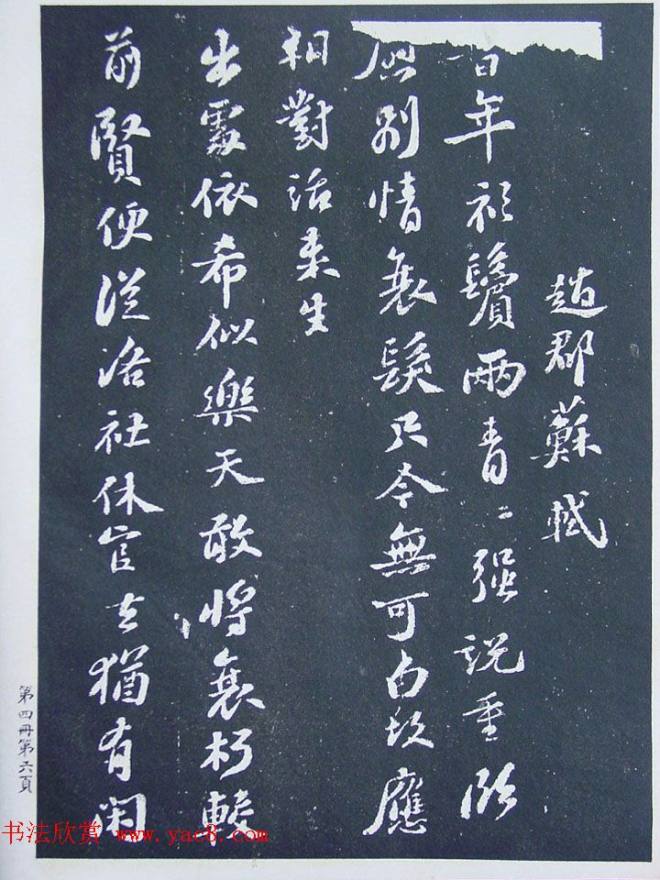 趙郡蘇軾
年衫鬢兩青〻强説重臨
慰别情衰髮只今無可白故應
相對話来生
出處依希似樂天敢將衰朽較
前賢便從洛社休官去猶有閑
第四冊第六頁
书法欣赏 www.yac8.com